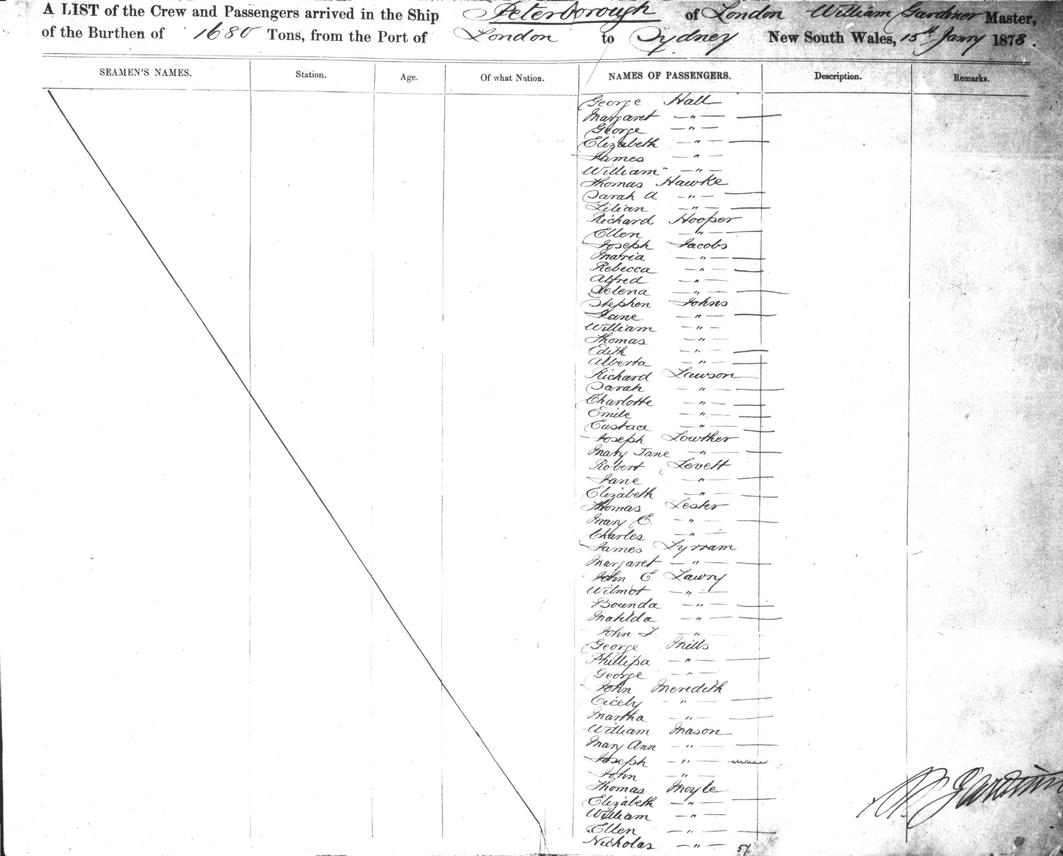 A LIST of the Crew and Passengers arrived in the Ship Peterborough of London William Gardiner Master,
of the Burthen of 1680 Tons, from the Port of London to Sydney New South Wales, 15th Janry 1878.
SEAMEN'S NAMES. Station. Age. Of what Nation. NAMES OF PASSENGERS. Description. Remarks.
George Hall
Margaret —"—
George —"—
Elizabeth —"—
James —"—
William —"—
Thomas Hawke
Sarah A —"—
Lilian —"—
Richard Hooper
Ellen —"—
Joseph Jacobs
Maria —"—
Rebecca —"—
Alfred —"—
Helena —"—
Stephen Johns
Jane —"—
William —"—
Thomas —"—
Edith —"—
Alberta —"—
Richard Lawson
Sarah —"—
Charlotte —"—
Emile —"—
Eustace —"—
Joseph Lowther
Mary Jane —"—
Robert Levett
Jane —"—
Elizabeth —"—
Thomas Lester
Mary E. —"—
Charles —"—
James Lyrram
Margaret —"—
John E Lawry
Wilmot —"—
Bounda —"—
Matilda —"—
John T —"—
George Mills
Phillipa —"—
George —"—
John Meredith
Cicely —"—
Martha —"—
William Mason
Mary Ann —"—
Joseph —"—
John —"—
Thomas Moyle
Elizabeth —"—
William —"—
Ellen —"—
Nicholas —"—
W. Gardiner